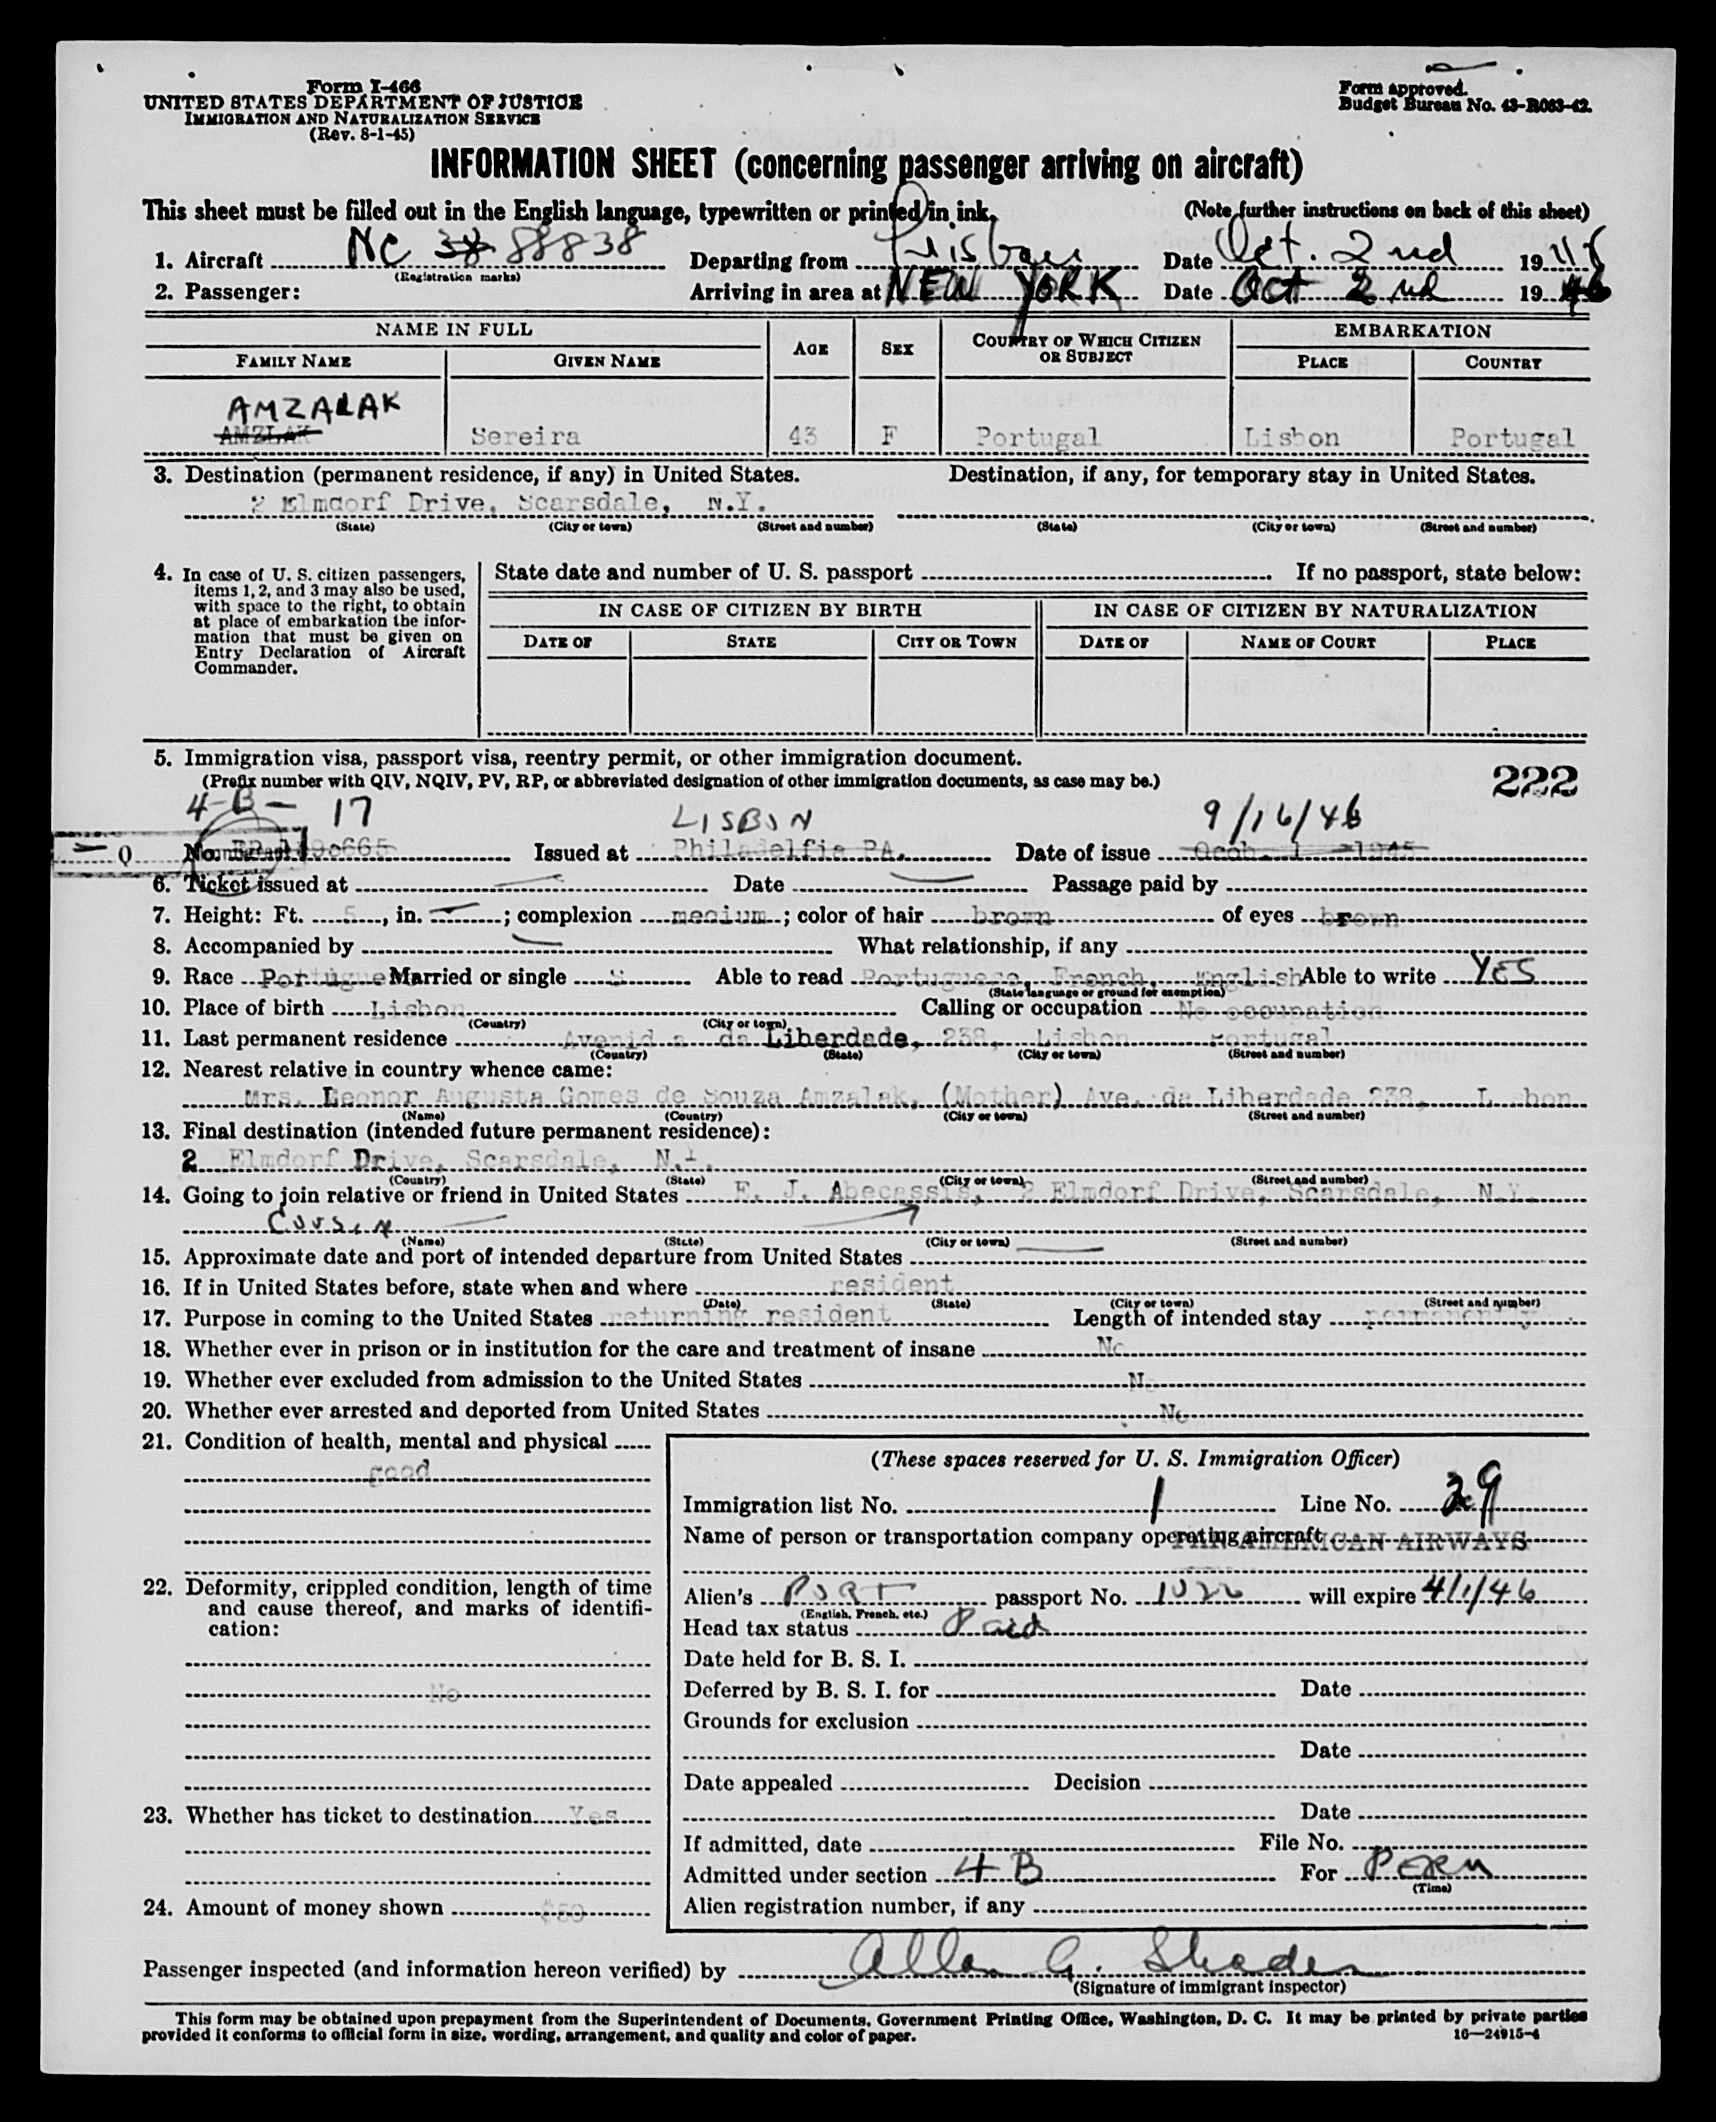 Form I-466
UNITED STATES DEPARTMENT OF JUSTICE
IMMIGRATION AND NATURALIZATION SERVICE
(Rev. 8-1-45)
Form approved.
Budget Bureau No. 43-R063-42.
INFORMATION SHEET (concerning passenger arriving on aircraft)
This sheet must be filled out in the English language, typewritten or printed in ink. (Note further instructions on back of this sheet)
1. Aircraft NC 38 88838 Departing from Lisbon Date Oct. 2nd 19
(Registration marks)
2. Passenger: Arriving in area at NEW YORK Date Oct 2nd 19 46
NAME IN FULL AGE SEX COUNTRY OF WHICH CITIZEN OR SUBJECT EMBARKATION
FAMILY NAME GIVEN NAME PLACE COUNTRY
AMZALAK
AMZLAK Sereira 43 F Portugal Lisbon Portugal
3. Destination (permanent residence, if any) in United States. Destination, if any, for temporary stay in United States.
2 Elmdorf Drive, Scarsdale, N.Y.
(State) (City or town) (Street and number) (State) (City or town) (Street and number)
4. In case of U. S. citizen passengers, items 1, 2, and 3 may also be used, with space to the right, to obtain at place of embarkation the information that must be given on Entry Declaration of Aircraft Commander.
State date and number of U. S. passport If no passport, state below:
IN CASE OF CITIZEN BY BIRTH IN CASE OF CITIZEN BY NATURALIZATION
DATE OF STATE CITY OR TOWN DATE OF NAME OF COURT PLACE
5. Immigration visa, passport visa, reentry permit, or other immigration document.
(Prefix number with QIV, NQIV, PV, RP, or abbreviated designation of other immigration documents, as case may be.) 222
4-B- 17 LISBON 9/16/46
Q No. Issued at Philadelfia PA. Date of issue 1 1945
6. Ticket issued at Date Passage paid by
7. Height: Ft. 5, in. ; complexion medium; color of hair brown of eyes brown
8. Accompanied by What relationship, if any
9. Race Portugue Married or single S Able to read Portuguese, French, English Able to write YES
(State language or ground for exemption)
10. Place of birth Lisbon Calling or occupation No occupation
(Country) (City or town)
11. Last permanent residence Avenid a da Liberdade, 238, Lisbon Portugal
(Country) (State) (City or town) (Street and number)
12. Nearest relative in country whence came:
Mrs. Leonor Augusta Gomes de Souza Amzalak, (Mother) Ave. da Liberdade 238, L bon
(Name) (Country) (City or town) (Street and number)
13. Final destination (intended future permanent residence):
2 Elmdorf Drive, Scarsdale, N.Y.
(Country) (State) (City or town) (Street and number)
14. Going to join relative or friend in United States E. J. Abecassis, 2 Elmdorf Drive, Scarsdale, N.Y.
Cousin
(Name) (State) (City or town) (Street and number)
15. Approximate date and port of intended departure from United States
16. If in United States before, state when and where resident
(Date) (State) (City or town) (Street and number)
17. Purpose in coming to the United States returning resident Length of intended stay permanently
18. Whether ever in prison or in institution for the care and treatment of insane No
19. Whether ever excluded from admission to the United States No
20. Whether ever arrested and deported from United States No
21. Condition of health, mental and physical
good
22. Deformity, crippled condition, length of time and cause thereof, and marks of identification:
No
23. Whether has ticket to destination Yes
24. Amount of money shown $50
(These spaces reserved for U. S. Immigration Officer)
Immigration list No. 1 Line No. 29
Name of person or transportation company operating aircraft PAN AMERICAN AIRWAYS
Alien's PORT passport No. 1022 will expire 4/1/46
(English, French, etc.)
Head tax status Paid
Date held for B. S. I.
Deferred by B. S. I. for Date
Grounds for exclusion
Date
Date appealed Decision
Date
If admitted, date File No.
Admitted under section 4 B For PERM
(Time)
Alien registration number, if any
Passenger inspected (and information hereon verified) by Allan G. Shader
(Signature of immigrant inspector)
This form may be obtained upon prepayment from the Superintendent of Documents, Government Printing Office, Washington, D. C. It may be printed by private parties
provided it conforms to official form in size, wording, arrangement, and quality and color of paper. 16—24915-4